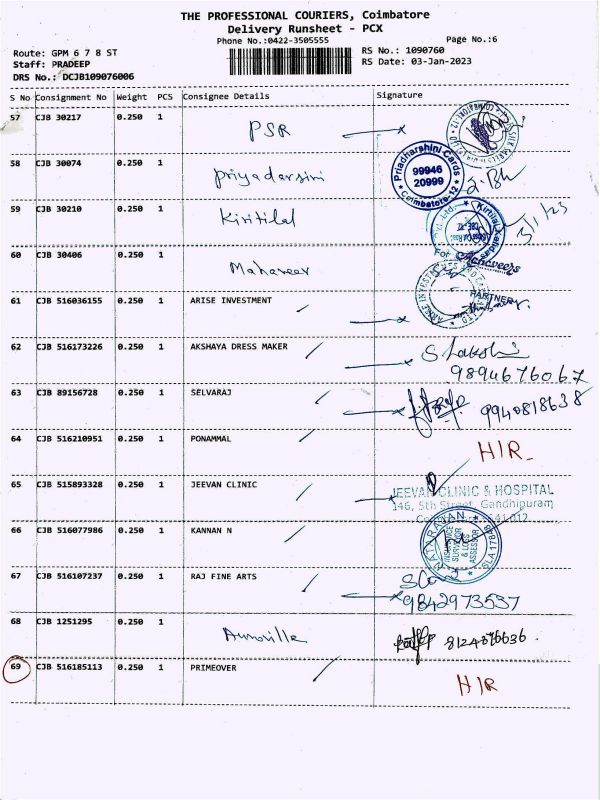 THE PROFESSIONAL COURIERS, Coimbatore
Delivery Runsheet - PCX
Phone No.:0422-3505555
Page No.:6
Route: GPM 6 7 8 ST
RS No.: 1090760
Staff: PRADEEP
RS Date: 03-Jan-2023
DRS No.: DCJB109076006
S No Consignment No Weight PCS Consignee Details Signature
57 CJB 30217 0.250 1 PSR
58 CJB 30074 0.250 1 Priyadarsini
Priadharshini Cards
99946
20999
Coimbatore-12
59 CJB 30210 0.250 1 Kiritilal
3/1/23
60 CJB 30406 0.250 1 Mahaveer
For Mahaveers
PARTNER
61 CJB 516036155 0.250 1 ARISE INVESTMENT
62 CJB 516173226 0.250 1 AKSHAYA DRESS MAKER
9894676067
63 CJB 89156728 0.250 1 SELVARAJ
9940818638
64 CJB 516210951 0.250 1 PONAMMAL H/R
65 CJB 515893328 0.250 1 JEEVAN CLINIC
JEEVAN CLINIC & HOSPITAL
346, 5th Street, Gandhipuram
66 CJB 516077986 0.250 1 KANNAN N
NATARAJAN
INSURANCE
SURVEYOR
& LOSS
ASSESSOR
67 CJB 516107237 0.250 1 RAJ FINE ARTS
9842973537
68 CJB 1251295 0.250 1 Auroville
8124376636
69 CJB 516185113 0.250 1 PRIMEOVER H/R